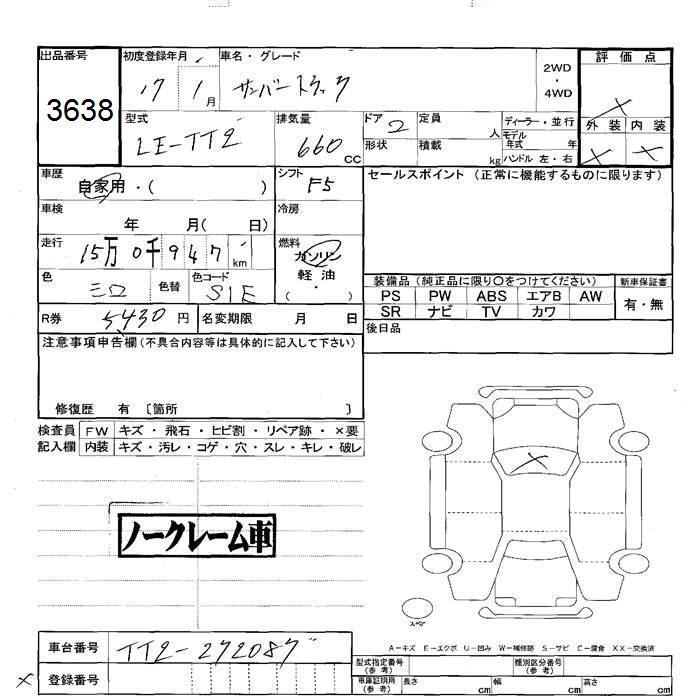 出品番号 初度登録年月 車名・グレード 2WD・4WD 評価点
3638 17 1月 サンバートラック ×
型式 排気量 ドア 定員 ディーラー・並行 外装 内装
LE-TT2 660cc 2 人 モデル年式 年 × ×
形状 積載 kg ハンドル 左・右
車歴 自家用・( ) シフト F5 セールスポイント(正常に機能するものに限ります)
車検 年 月( 日) 冷房
走行 15万0千947km 燃料 ガソリン
軽油
色 シロ 色替 色コード S1E ( ・ )
装備品(純正品に限り○をつけてください) 新車保証書
PS PW ABS エアB AW 有・無
SR ナビ TV カワ
R券 5,430円 名変期限 月 日 後日品
注意事項申告欄(不具合内容等は具体的に記入して下さい)
修復歴 有 〔箇所 〕
検査員 FW キズ・飛石・ヒビ割・リペア跡・×要
記入欄 内装 キズ・汚レ・コゲ・穴・スレ・キレ・破レ
×
ノークレーム車
スペア
A―キズ E―エクボ U―凹み W―補修跡 S―サビ C―腐食 XX―交換済
車台番号 TT2-272087
× 登録番号
型式指定番号(参考) 類別区分番号(参考)
車庫証明用(参考) 長さ cm 幅 cm 高さ cm